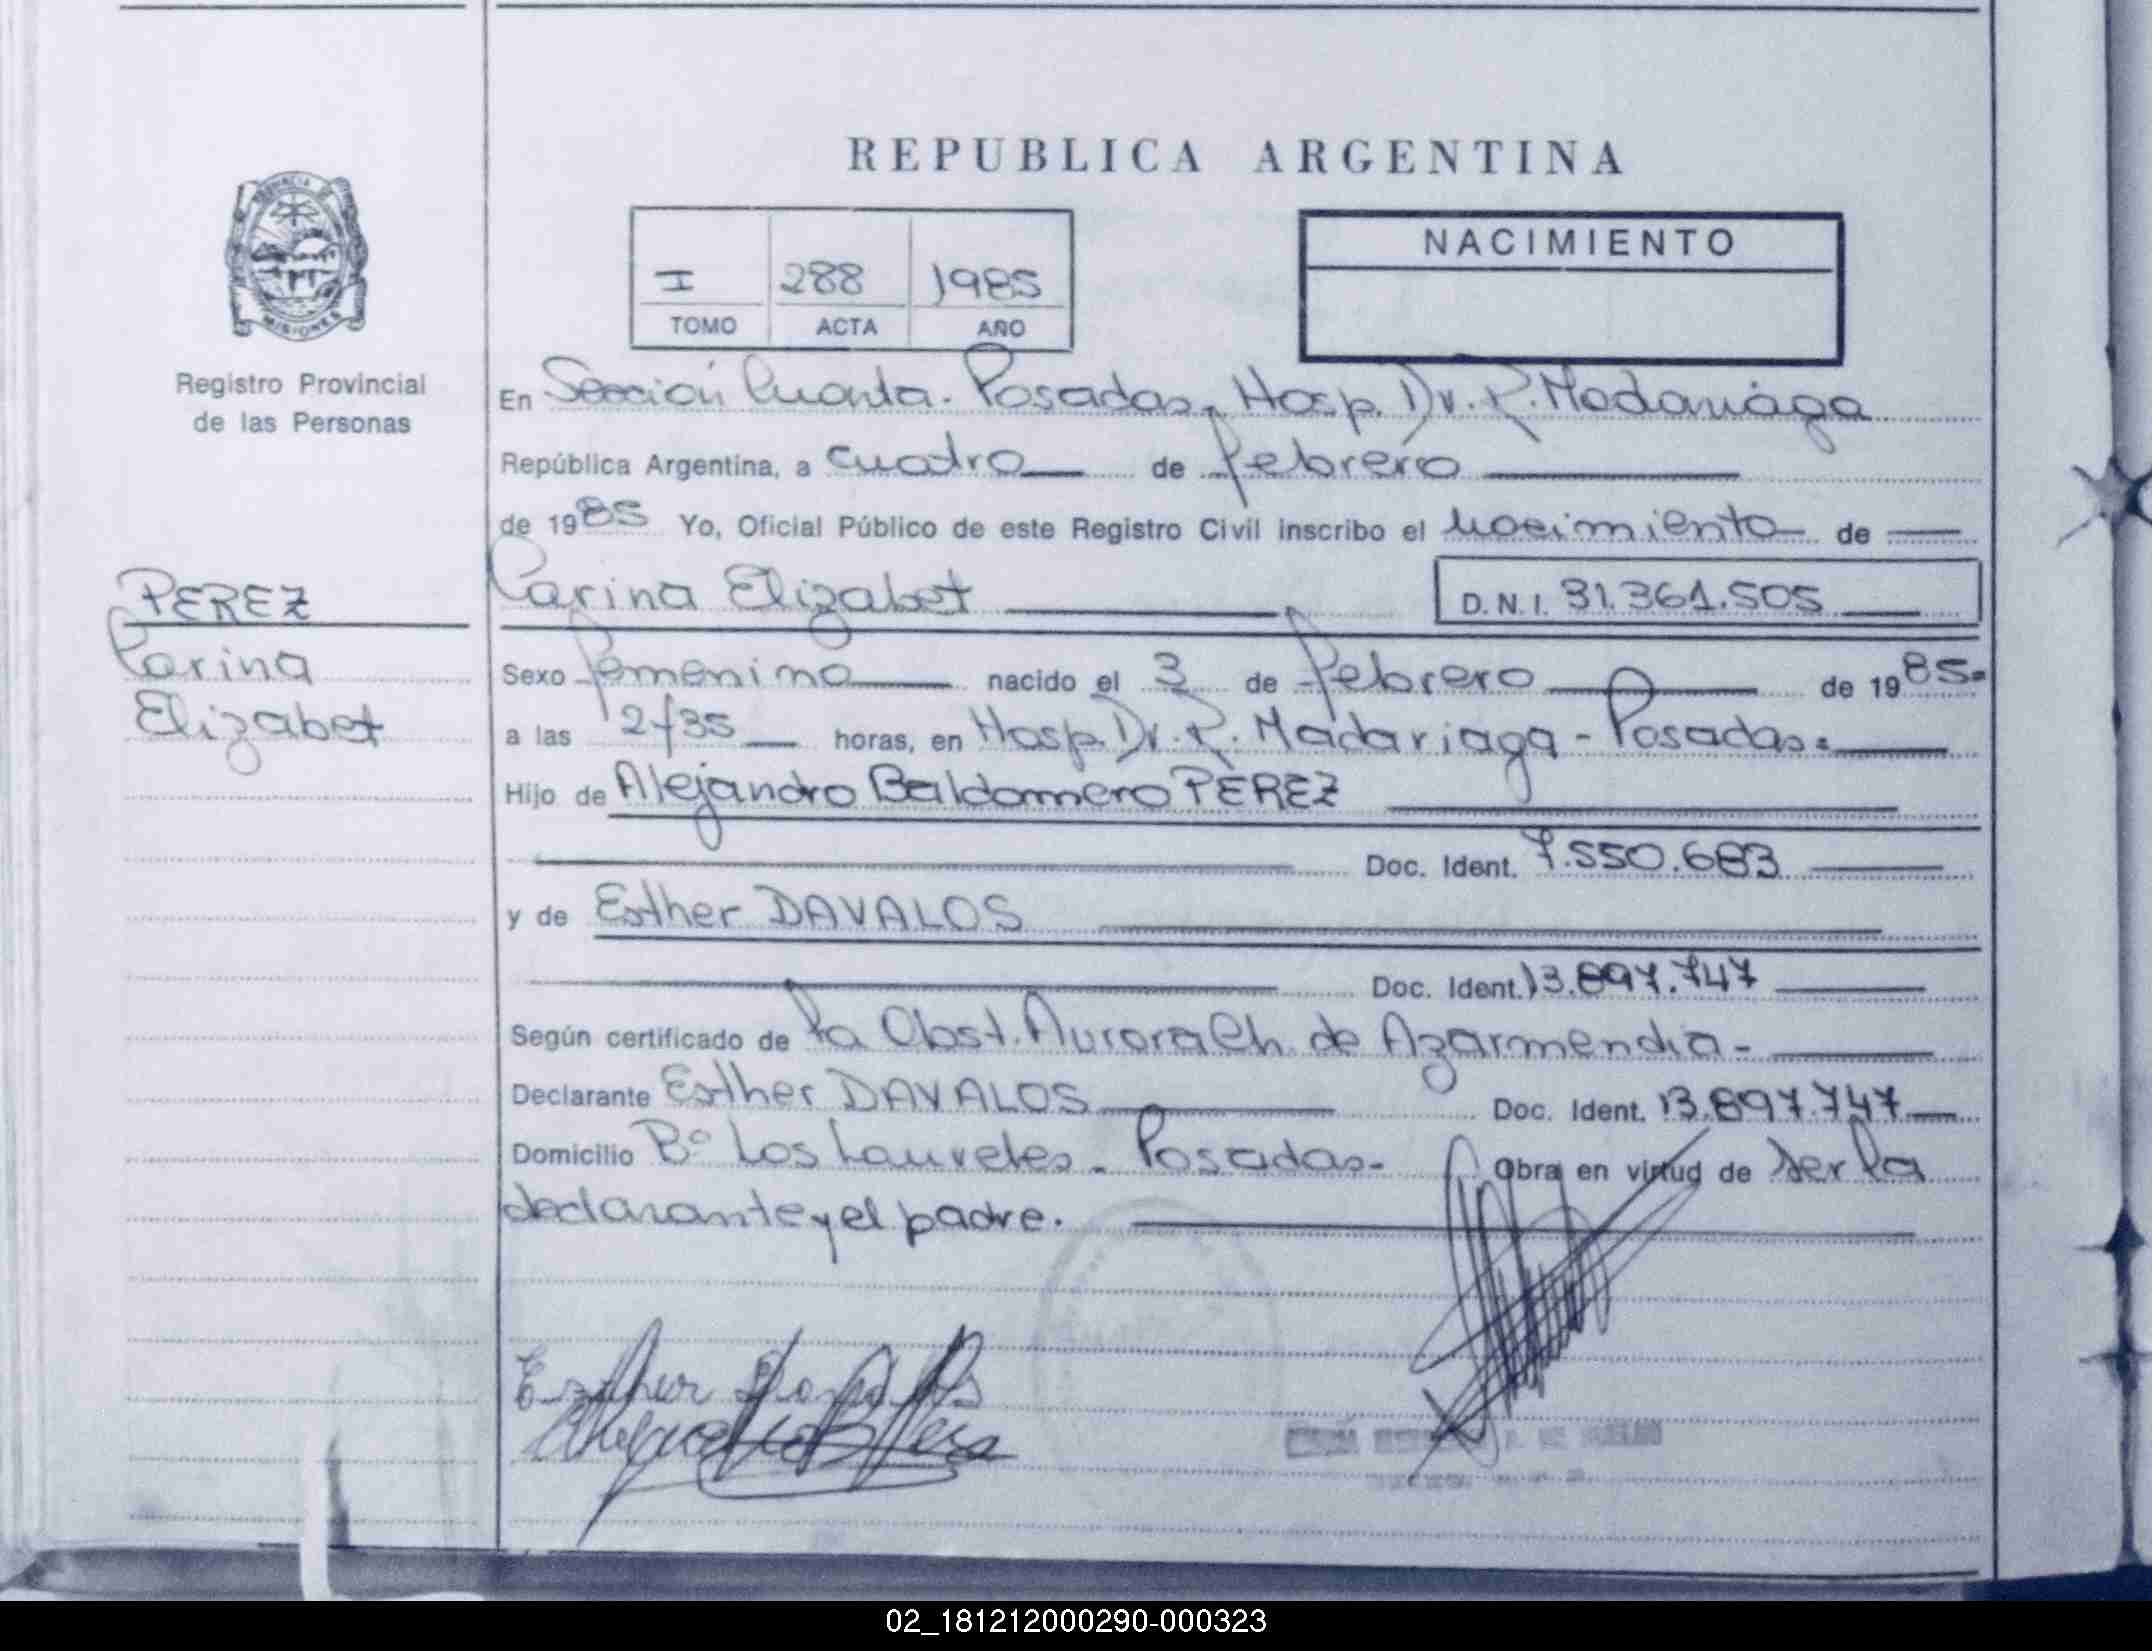 REPUBLICA ARGENTINA
PROVINCIA DE
MISIONES
Registro Provincial
de las Personas
I 288 1985
TOMO ACTA AÑO
NACIMIENTO
En Sección Cuarta. Posadas, Hosp. Dr. R. Madariaga
República Argentina, a cuatro de febrero
de 1985 Yo, Oficial Público de este Registro Civil inscribo el nacimiento de
PEREZ
Carina
Elizabet
Carina Elizabet D.N.I. 31.361.505
Sexo femenino nacido el 3 de febrero de 1985=
a las 2/35 horas, en Hosp. Dr. R. Madariaga - Posadas.
Hijo de Alejandro Baldomero PEREZ
Doc. Ident. 7.550.683
y de Esther DAVALOS
Doc. Ident. 13.897.747
Según certificado de la Obst. Aurora Ch. de Azarmendia-
Declarante Esther DAVALOS Doc. Ident. 13.897.747
Domicilio Bº Los Laureles. Posadas- Obra en virtud de ser la
declarante y el padre.
Esther Davalos
02_181212000290-000323